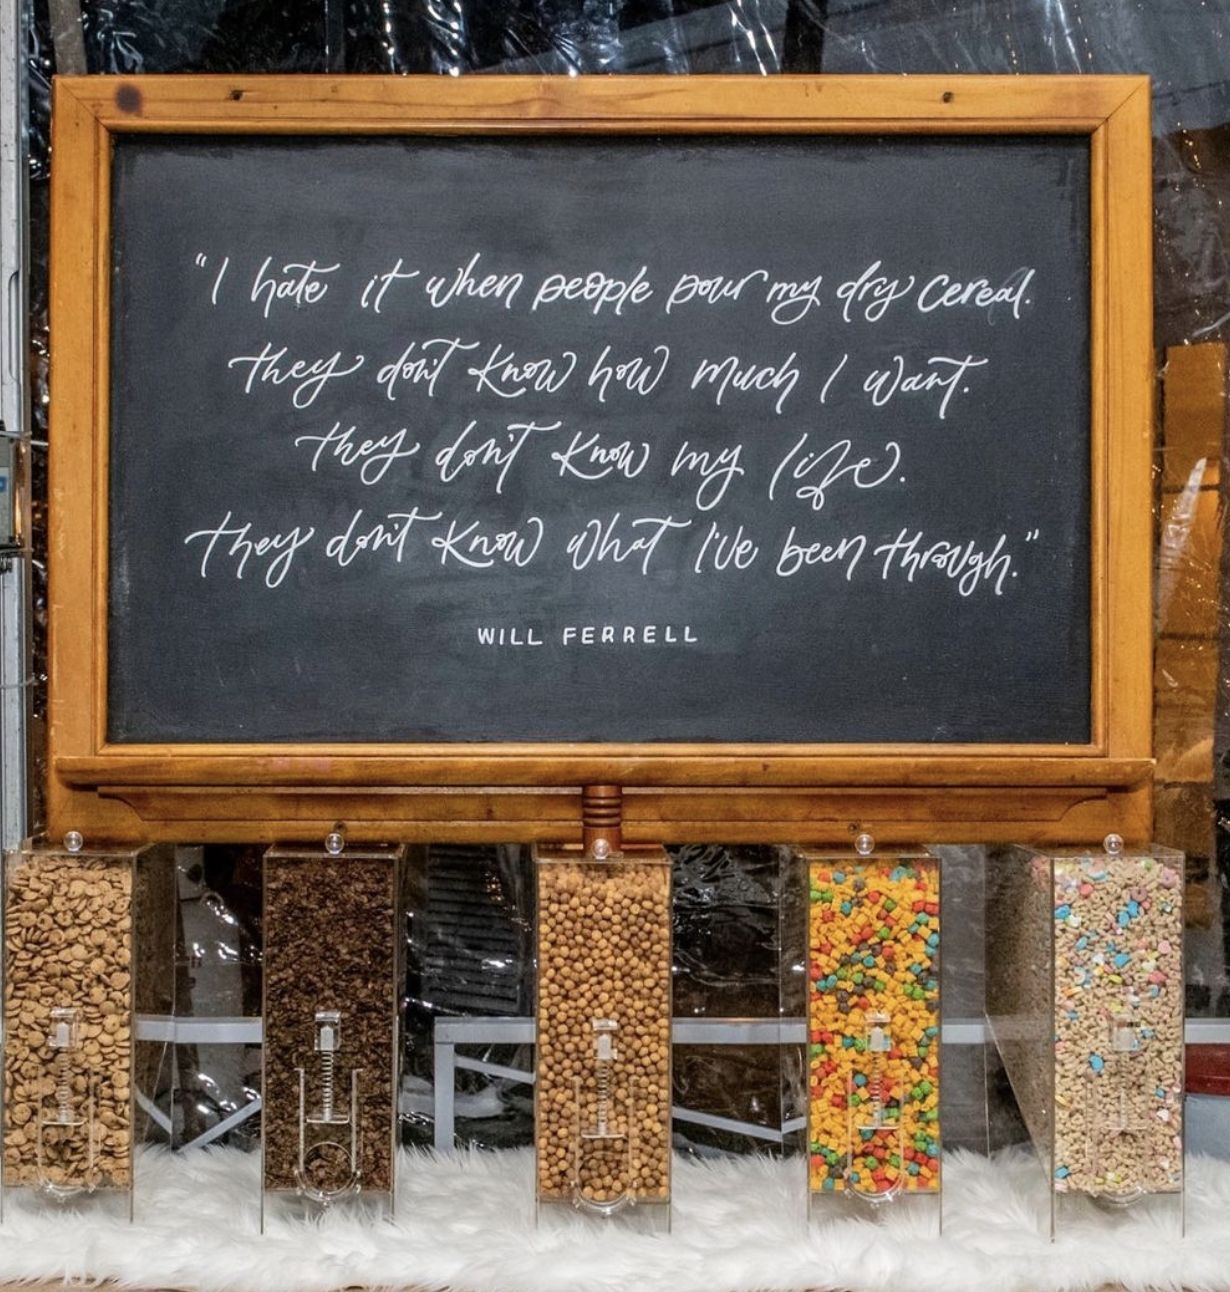 "I hate it when people pour my dry cereal.
they don't know how much I want.
they don't know my life.
they don't know what I've been through."
WILL FERRELL